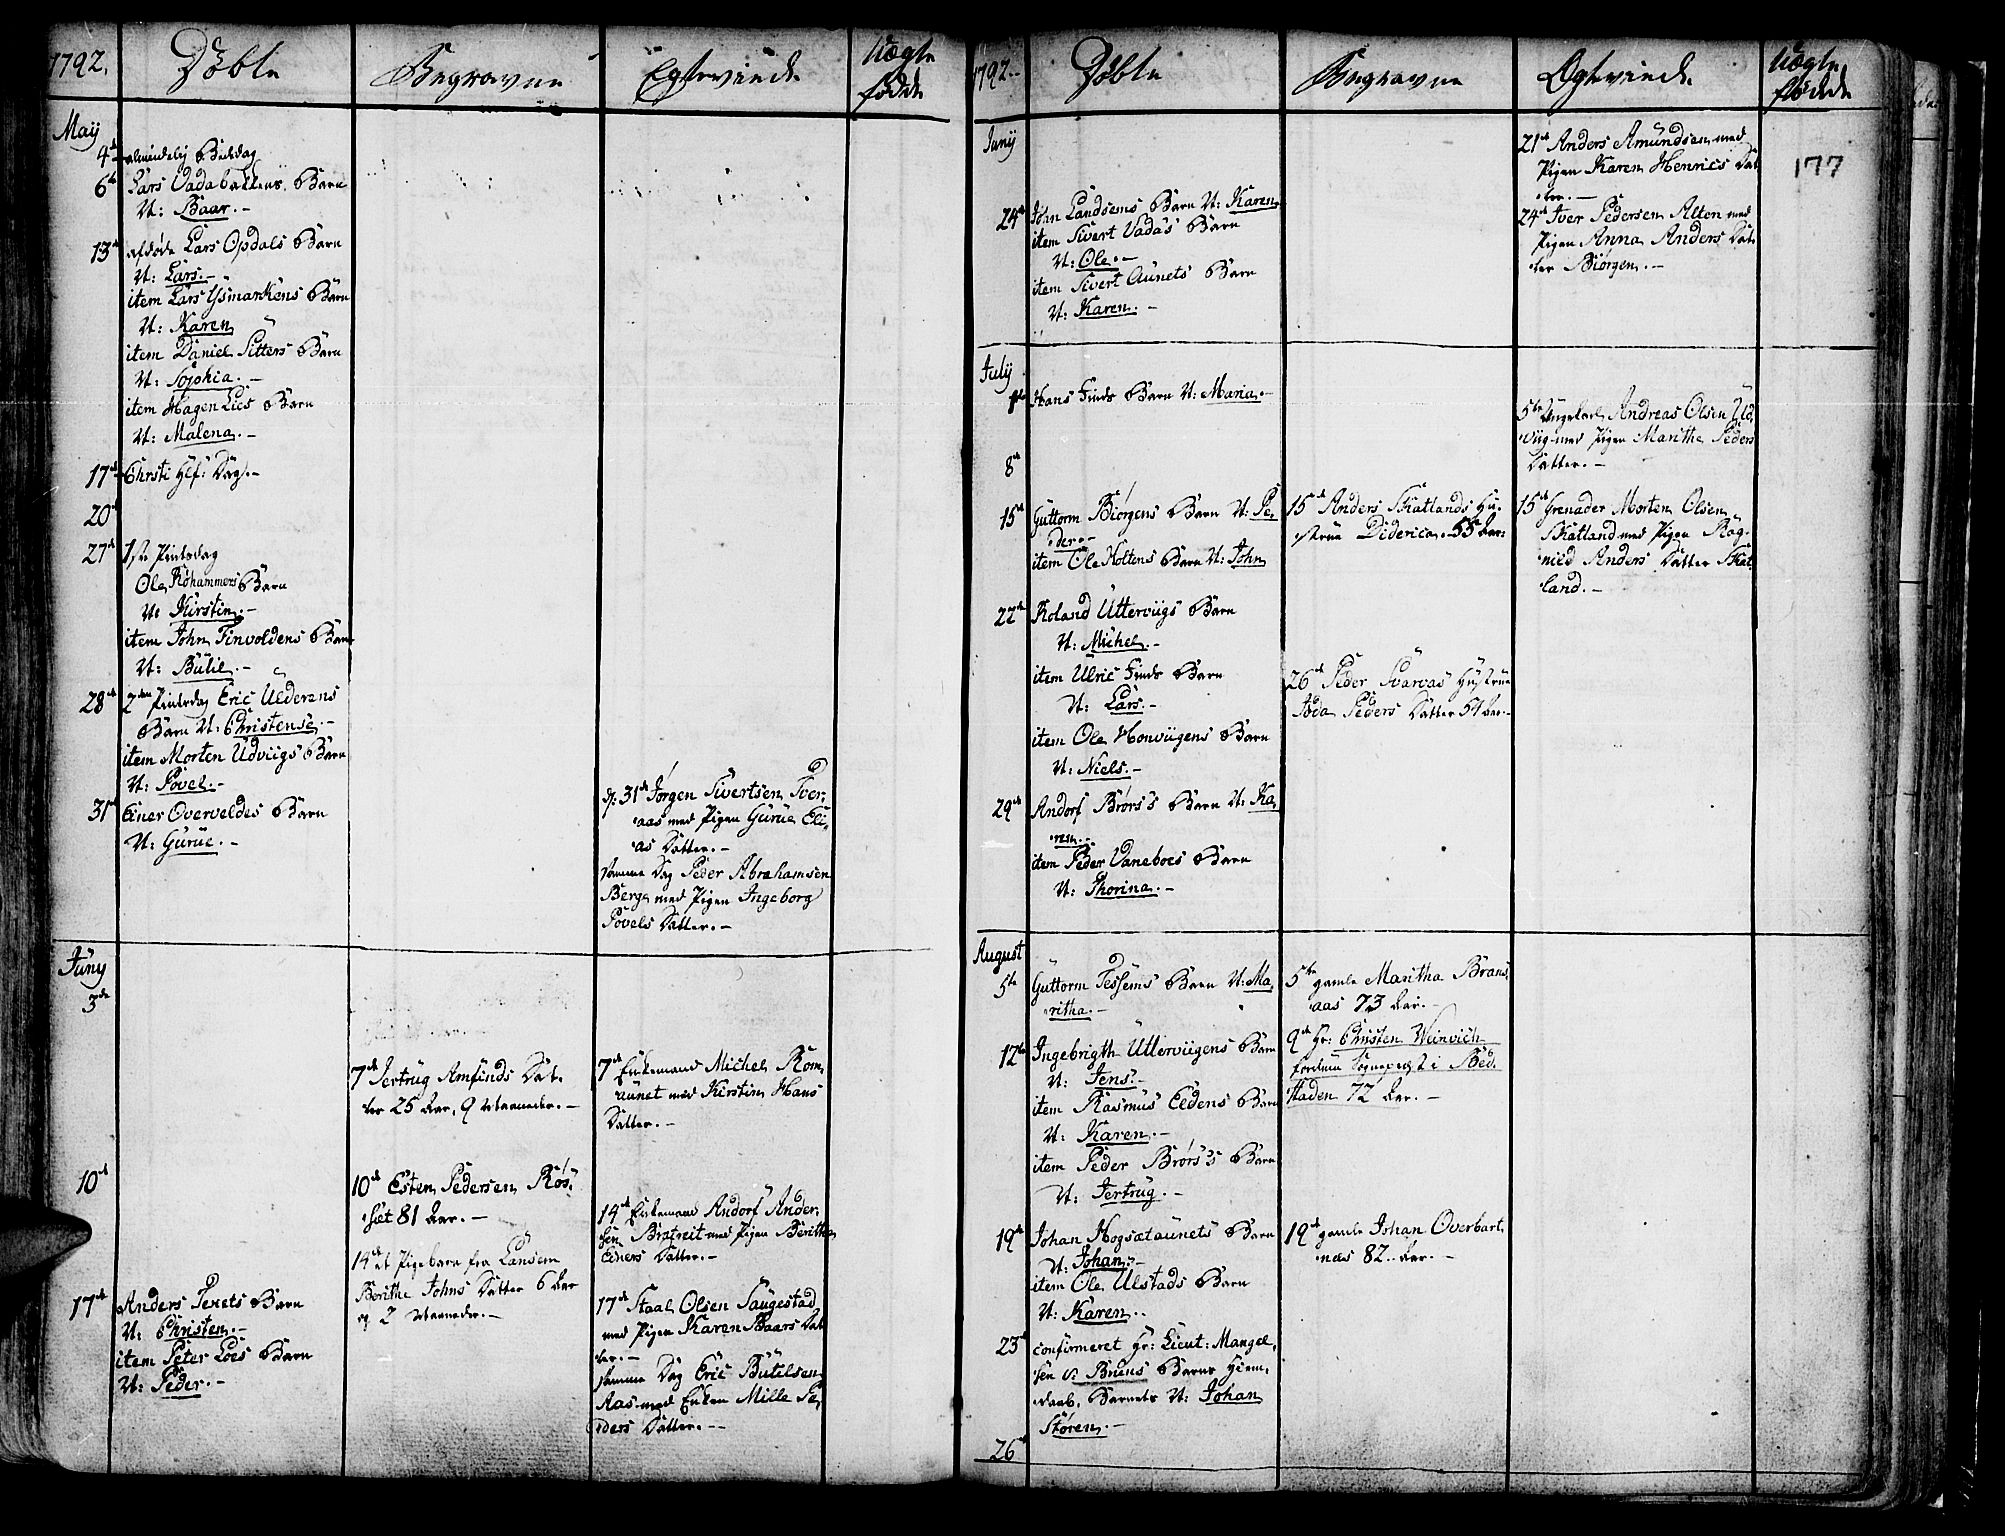 1792. Døbte Begravne Egteviede Uægte
fødde
May
4de almindelig Bededag
6te Lars Vadabakkens Barn
N: Baar.-
13de afdøde Lars Opdals Barn
N: Lars.-
item Lars Ysmarkens Barn
N: Karen
item Daniel Sitters Barn
N: Sophia.-
item Hagen Lies Barn
N: Malena.-
17de Christi Hlf: Dag.-
20de
27de 1ste Pintsdag
Ole Røhammers Barn
N: Kirstin.-
item John Finvoldens Barn
N: Büllé.-
28de 2den Pintsdag Eric Ulderens
Barn N: Christense.-
item Morten Udviigs Barn
N: Povel.-
31te Einer Overveldes Barn
N: Gurue.-
d: 31te Jørgen Sivertsen Tver-
aas med Pigen Gurue Eli-
as Datter.-
samme Dag Peder Abrahamsen
Berge med Pigen Ingeborg
Povels Datter.-
Juny
3de
7de Jertrug Amfinds Dat-
ter 25 Aar, 9 Maaneder.-
7de Enkemand Michel Rom-
aunet med Kirstin Hans
Datter.-
10de
10de Esten Pedersen Røs-
sæt 81 Aar.-
14de et Pigebarn fra Landsem
Berithe Johns Datter 6 Aar
og 2 Maaneder.-
14de Enkemand Andorf Ander-
sen Bratreit med Pigen Berithe
Einers Datter.-
17de Anders Texets Barn
N: Christen.-
item Peter Loes Barn
N: Peder.-
17de Staal Olsen Saugestad
med Pigen Karen Baars Dat-
ter.-
samme Dag Eric Bütelsen
Aas med Enken Mille Pe-
ders Datter.-
1792. Døbte Begravne Egteviede Uægte
fødde
177
Juny
24de Johan Landsems Barn N: Karen
item Sivert Vadas Barn
N: Ole.-
item Sivert Aunets Barn
N: Karen.-
21de Anders Amundsen med
Pigen Karen Henrics Dat-
ter.-
24de Iver Pedersen Alten med
Pigen Anna Anders Dat-
ter Biørgen.-
July
1ste Hans Finds Barn N: Maria.-
5te Ungekarl Andreas Olsen Ud-
viig med Pigen Maritha Peders
Datter.-
8de
15de Guttorm Biørgens Barn N: Pe-
der.-
item Ole Holtens Barn N: John
15de Anders Skatlands Hu-
strue Diderica. 55 Aar.
15de Grenader Morten Olsen
Skatland med Pigen Rag-
nild Anders Datter Skat-
land.-
22de Roland Utterviigs Barn
N: Michel.-
item Ulric Finds Barn
N: Lars.-
item Ole Honviigens Barn
N: Niels.-
26de Peder Svarvas Hustrue
Joda Peders Datter 54 Aar.-
29de Andorf Brørs's Barn N: Ka-
ren.-
item Peder Vaneboes Barn
N: Thorina.-
August
5te Guttorm Tessems Barn N: Ma-
ritha.-
5te gamle Maritha Brans-
aas 73 Aar.-
9de Hr: Christen Weinvich
fordum Sogneprest i Bed-
staden 72 Aar.-
12te Ingebrigth Utterviigens Barn
N: Jens.-
item Rasmus Eldens Barn
N: Karen.-
item Peder Brørs's Barn
N: Jertrug.-
19de Johan Hogsætaunets Barn
N: Johan.-
item Ole Ulstads Barn
N: Karen.-
19de gamle Johan Overbart-
næs 82.. Aar.-
23de confirmeret Hr: Lieut: Mangel-
sen v: Bruns Barns Hiem-
daab, Barnets N: Johan
Støren.-
26de